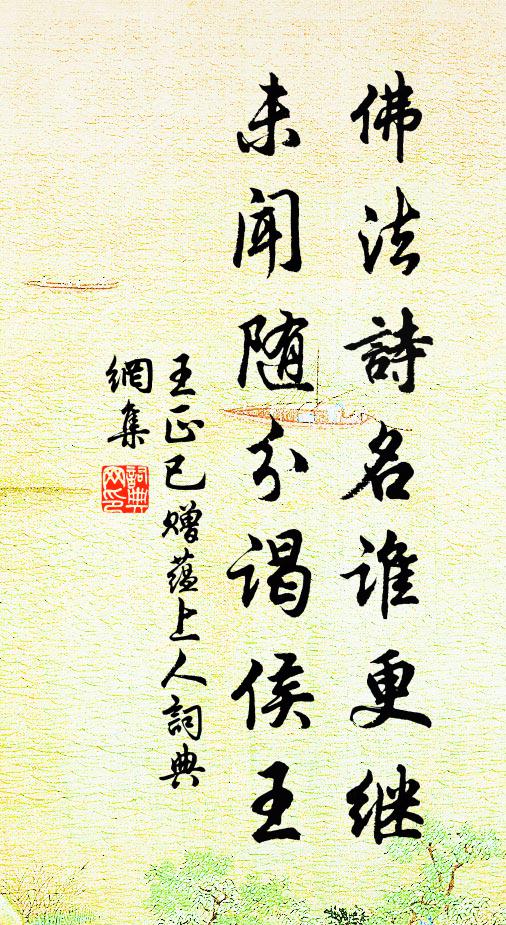 佛法詩名谁更继
未闻随分谒侯王
王正已赠蕴上人詞典
網集
詞典
网印